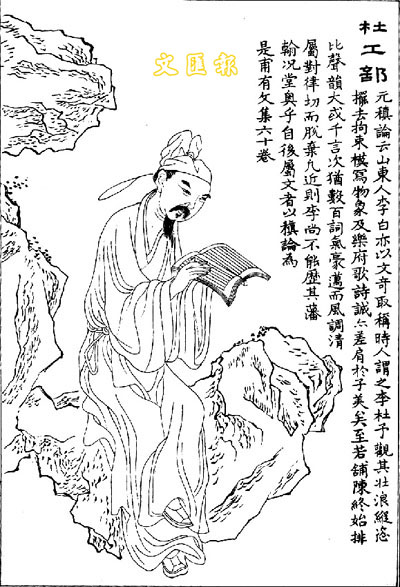 杜工部
元稹論云山東人李白亦以文奇取稱時人謂之李杜予觀其壯浪縱恣
擺去拘束模寫物象及樂府歌詩誠亦差肩於子美矣至若鋪陳終始排
比聲韻大或千言次猶數百詞氣豪邁而風調清
屬對律切而脫棄凡近則李尚不能歷其藩
翰况堂奧乎自後屬文者以稹論為
是甫有文集六十卷
文匯報